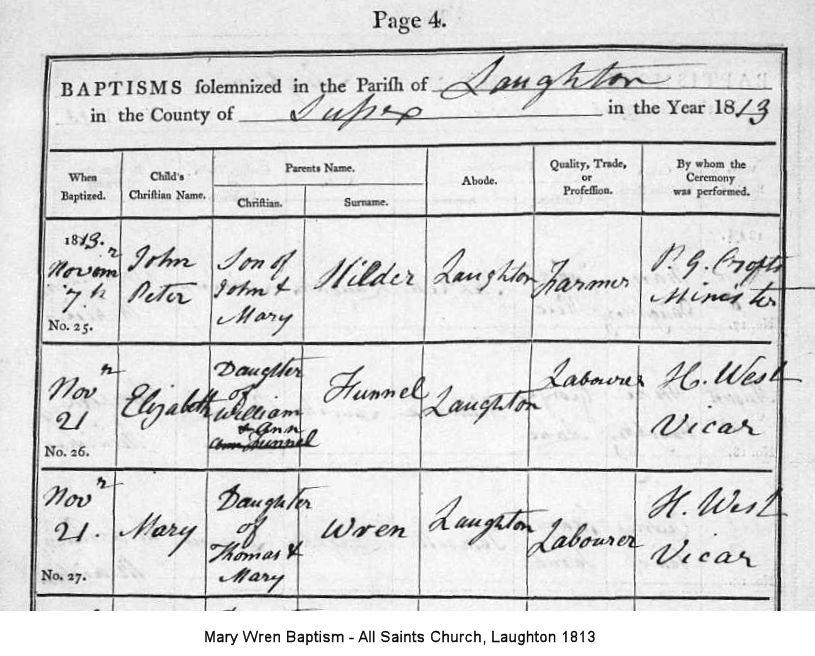 Page 4.
BAPTISMS ſolemnized in the Pariſh of Laughton
in the County of Suſsex in the Year 1813
When Baptized.
Child's Chriſtian Name.
Parents Name.
Chriſtian.
Surname.
Abode.
Quality, Trade, or Profeſſion.
By whom the Ceremony was performed.
1813.
Novemr
7th
No. 25.
John
Peter
Son of
John &
Mary
Hilder
Laughton
Farmer
P. G. Crofts
Minister
Novr
21
No. 26.
Elizabeth
Daughter
of
William
& Ann
Funnel
Funnel
Laughton
Labourer
H. West
Vicar
Novr
21.
No. 27.
Mary
Daughter
of
Thomas &
Mary
Wren
Laughton
Labourer
H. West
Vicar
Mary Wren Baptism - All Saints Church, Laughton 1813